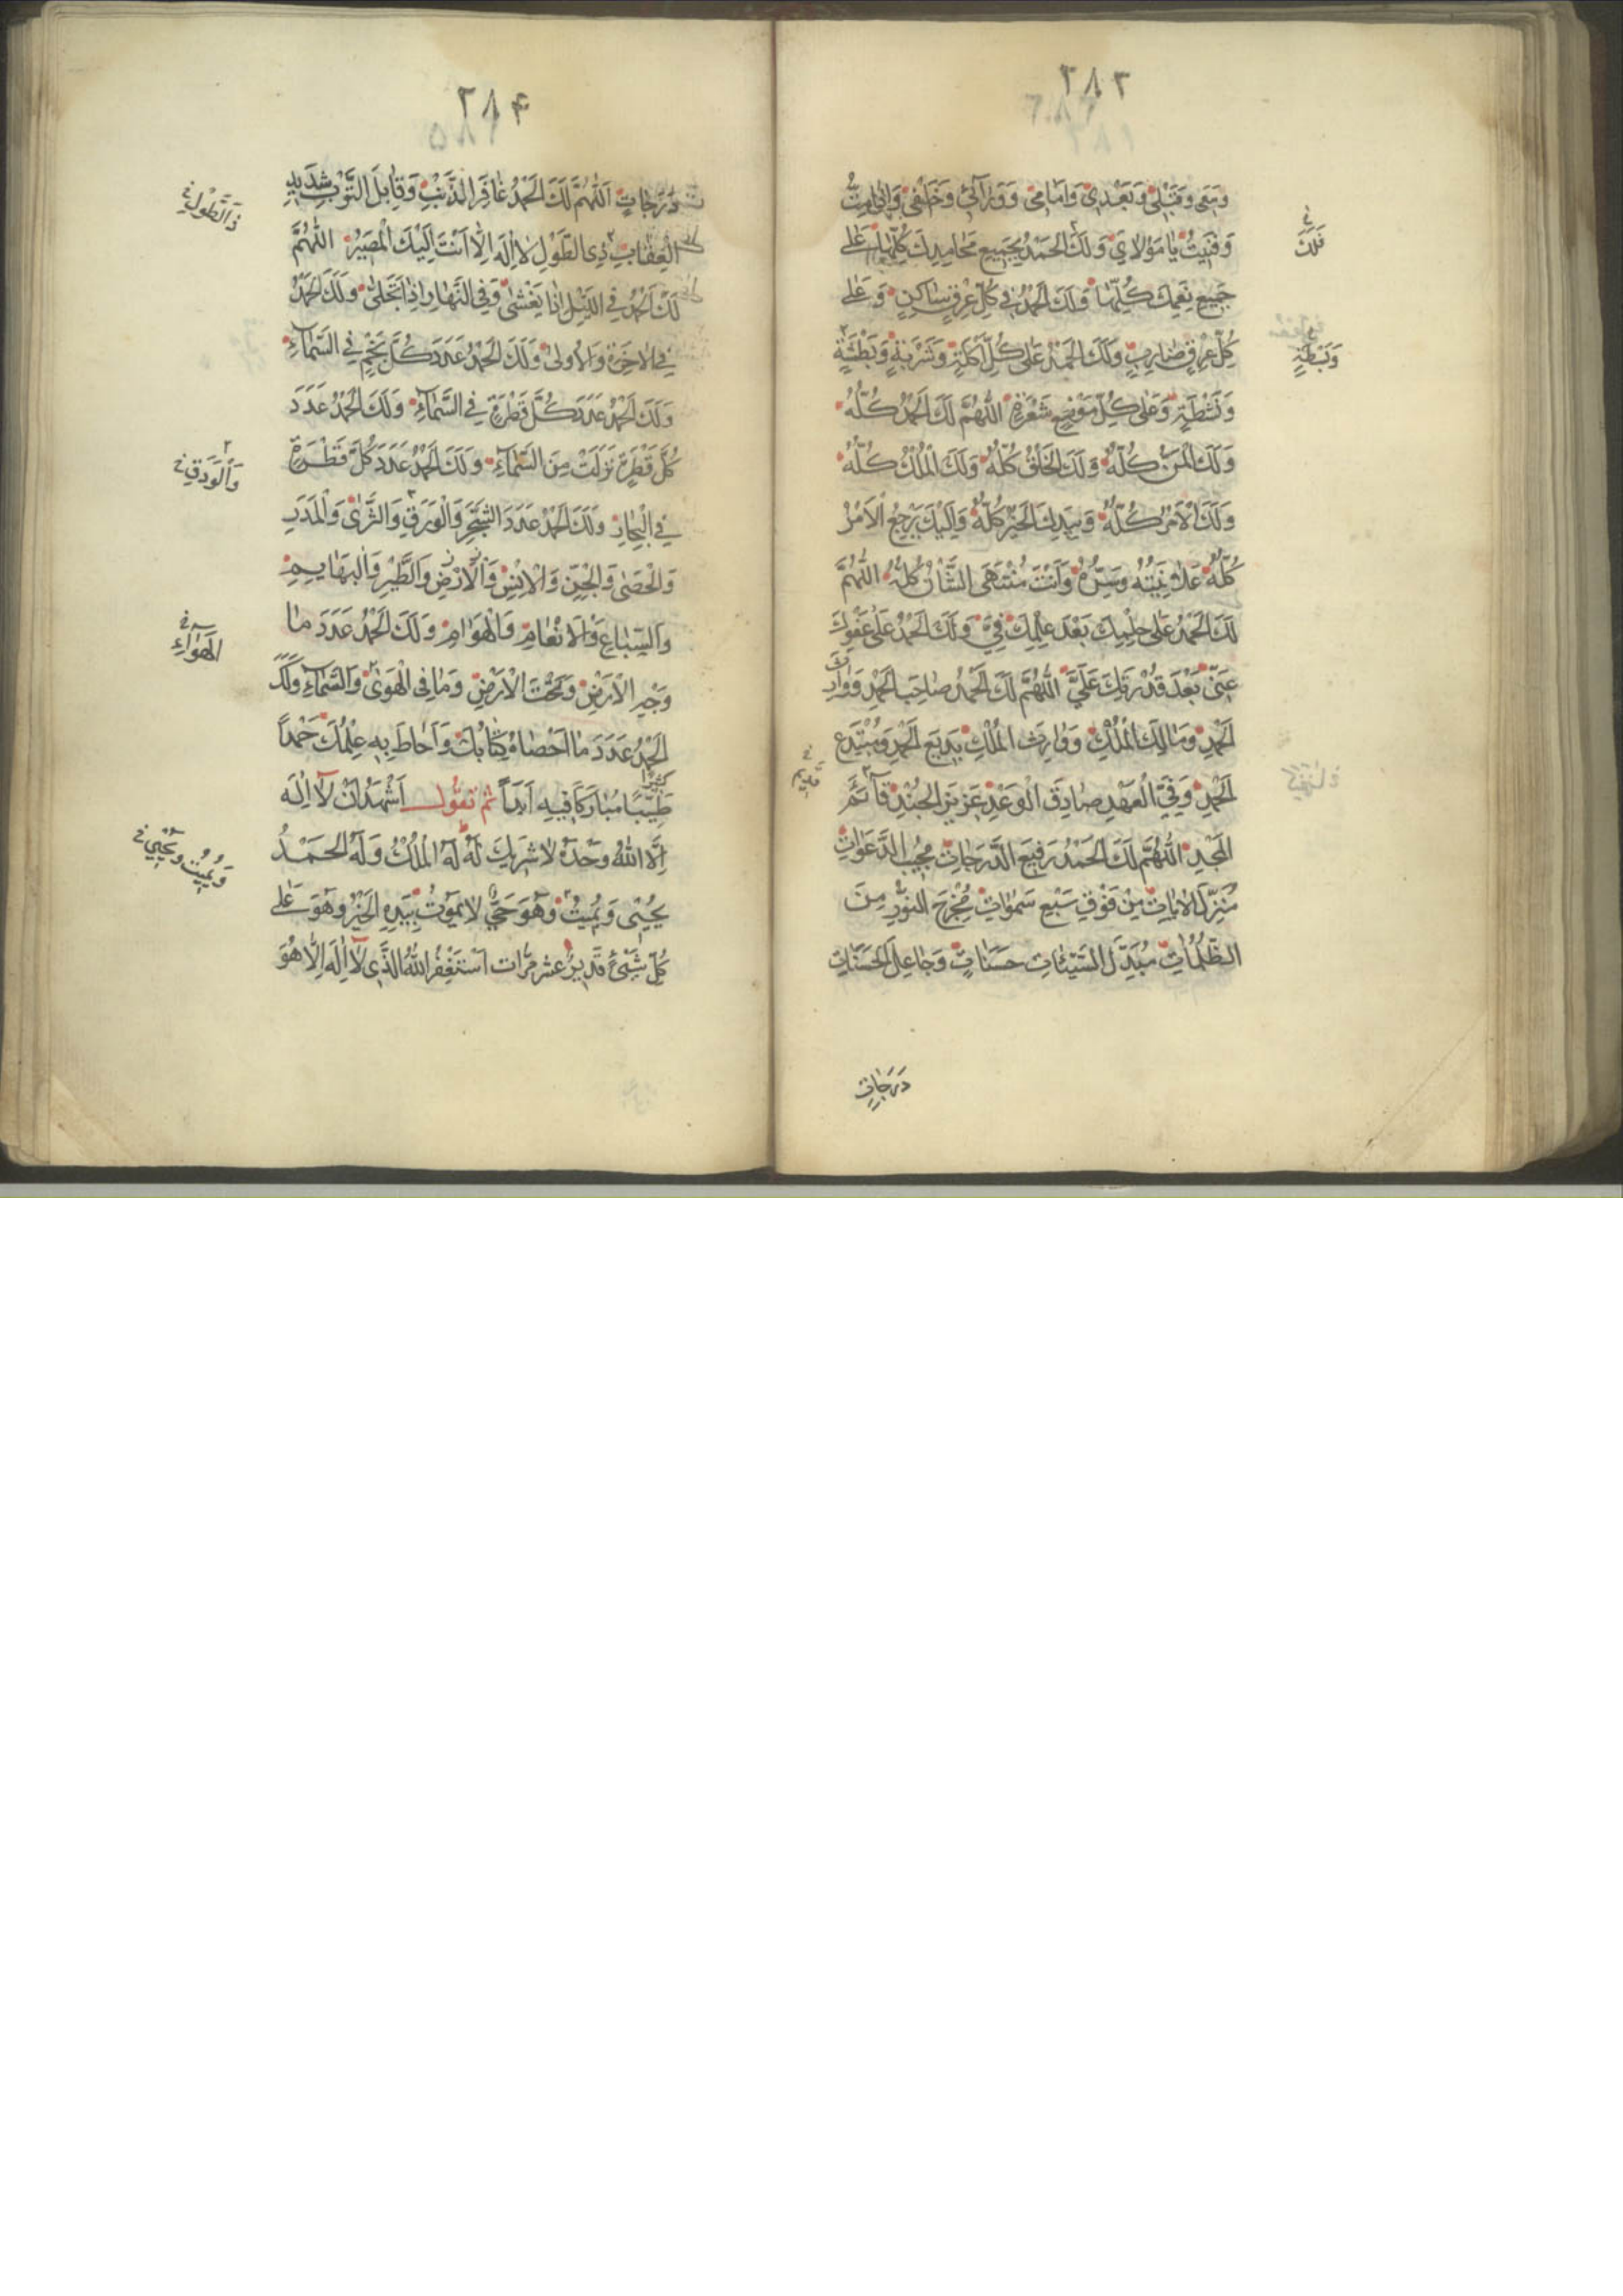 ٢٨٣
وَبَقِيَ وَقَبْلِي وَبَعْدِي وَاَمَامِي وَوَرَآئِي وَخَلْفِي وَاِذَا مِتُّ
وَفَنِيتُ يَا مَوْلَايَ وَلَكَ الْحَمْدُ بِجَمِيعِ مَحَامِدِكَ كُلِّهَا عَلَى
فَلَكَ
جَمِيعِ نِعَمِكَ كُلِّهَا وَلَكَ الْحَمْدُ فِي كُلِّ عِرْقٍ سَاكِنٍ وَعَلَى
كُلِّ عِرْقٍ ضَارِبٍ وَلَكَ الْحَمْدُ عَلَى كُلِّ اَكْلَةٍ وَشَرْبَةٍ وَبَطْشَةٍ
وَبَسْطَةٍ
وَنَشْطَةٍ وَعَلَى كُلِّ مَوْضِعِ شَعْرَةٍ اَللّٰهُمَّ لَكَ الْحَمْدُ كُلُّهُ
وَلَكَ الْمَنُّ كُلُّهُ وَلَكَ الْخَلْقُ كُلُّهُ وَلَكَ الْمُلْكُ كُلُّهُ
وَلَكَ الْاَمْرُ كُلُّهُ وَبِيَدِكَ الْخَيْرُ كُلُّهُ وَاِلَيْكَ يَرْجِعُ الْاَمْرُ
كُلُّهُ عَلَانِيَتُهُ وَسِرُّهُ وَاَنْتَ مُنْتَهَى الشَّاْنِ كُلِّهِ اَللّٰهُمَّ
لَكَ الْحَمْدُ عَلَى حِلْمِكَ بَعْدَ عِلْمِكَ فِيَّ وَلَكَ الْحَمْدُ عَلَى عَفْوِكَ
عَنِّي بَعْدَ قُدْرَتِكَ عَلَيَّ اَللّٰهُمَّ لَكَ الْحَمْدُ صَاحِبَ الْحَمْدِ وَوَارِثَ
الْحَمْدِ وَمَالِكَ الْمُلْكِ وَوَارِثَ الْمُلْكِ بَدِيعَ الْحَمْدِ وَمُبْتَدِعَ
الْحَمْدِ وَفِيَّ الْعَهْدِ صَادِقَ الْوَعْدِ عَزِيزَ الْجُنْدِ قَآئِمَ
قَدِيمَ
الْمَجْدِ اَللّٰهُمَّ لَكَ الْحَمْدُ رَفِيعَ الدَّرَجَاتِ مُجِيبَ الدَّعَوَاتِ
مُنْزِلَ الْاٰيَاتِ مِنْ فَوْقِ سَبْعِ سَمٰوَاتٍ مُخْرِجَ النُّورِ مِنَ
الظُّلُمَاتِ مُبَدِّلَ السَّيِّئَاتِ حَسَنَاتٍ وَجَاعِلَ الْحَسَنَاتِ
دَرَجَاتٍ
٢٨۴
دَرَجَاتٍ اَللّٰهُمَّ لَكَ الْحَمْدُ غَافِرَ الذَّنْبِ وَقَابِلَ التَّوْبِ شَدِيدَ
ذَا الطَّوْلِ
الْعِقَابِ ذِي الطَّوْلِ لَا اِلٰهَ اِلَّا اَنْتَ اِلَيْكَ الْمَصِيرُ اَللّٰهُمَّ
لَكَ الْحَمْدُ فِي اللَّيْلِ اِذَا يَغْشٰى وَفِي النَّهَارِ اِذَا تَجَلّٰى وَلَكَ الْحَمْدُ
فِي الْاٰخِرَةِ وَالْاُولٰى وَلَكَ الْحَمْدُ عَدَدَ كُلِّ نَجْمٍ فِي السَّمَآءِ
وَلَكَ الْحَمْدُ عَدَدَ كُلِّ قَطْرَةٍ فِي السَّمَآءِ وَلَكَ الْحَمْدُ عَدَدَ
كُلِّ قَطْرَةٍ نَزَلَتْ مِنَ السَّمَآءِ وَلَكَ الْحَمْدُ عَدَدَ كُلِّ قَطْرَةٍ
وَالْوَدَقِ
فِي الْبِحَارِ وَلَكَ الْحَمْدُ عَدَدَ الشَّجَرِ وَالْوَرَقِ وَالثَّرٰى وَالْمَدَرِ
وَالْحَصٰى وَالْجِنِّ وَالْاِنْسِ وَالْاَرْضِ وَالطَّيْرِ وَالْبَهَايِمِ
وَالسِّبَاعِ وَالْاَنْعَامِ وَالْهَوَامِ وَلَكَ الْحَمْدُ عَدَدَ مَا
الْهَوَآءِ
وَجْهِ الْاَرْضِ وَتَحْتَ الْاَرْضِ وَمَا فِي الْهَوٰى وَالسَّمَآءِ وَلَكَ
الْحَمْدُ عَدَدَ مَا اَحْصَاهُ كِتَابُكَ وَاَحَاطَ بِهِ عِلْمُكَ حَمْدًا
كَثِيرًا
طَيِّبًا مُبَارَكًا فِيهِ اَبَدًا ثم تقول اَشْهَدُ اَنْ لَا اِلٰهَ
اِلَّا اللّٰهُ وَحْدَهُ لَا شَرِيكَ لَهُ لَهُ الْمُلْكُ وَلَهُ الْحَمْدُ
وَيُمِيتُ وَيُحْيِي
يُحْيِي وَيُمِيتُ وَهُوَ حَيٌّ لَا يَمُوتُ بِيَدِهِ الْخَيْرُ وَهُوَ عَلَى
كُلِّ شَيْءٍ قَدِيرٌ عشر مرّات اَسْتَغْفِرُ اللّٰهَ الَّذِي لَا اِلٰهَ اِلَّا هُوَ